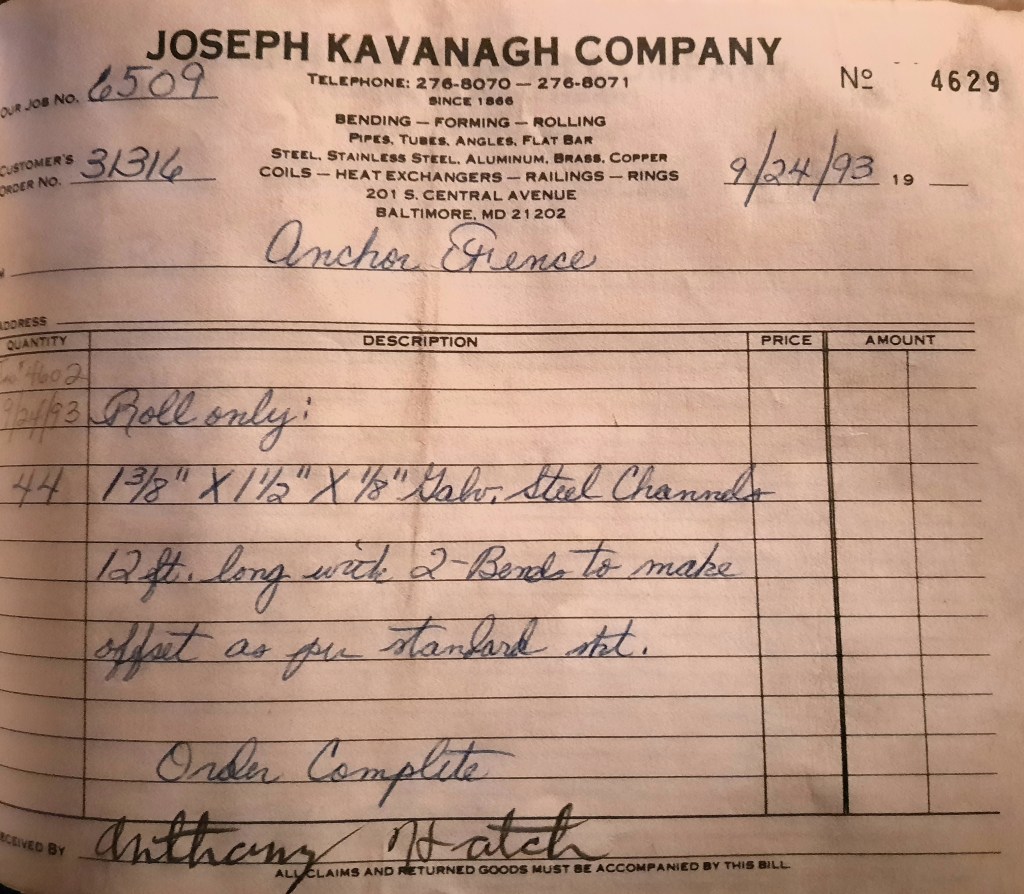 JOSEPH KAVANAGH COMPANY
TELEPHONE: 276-8070 — 276-8071
SINCE 1866
Nº 4629
OUR JOB NO. 6509
BENDING — FORMING — ROLLING
PIPES, TUBES, ANGLES, FLAT BAR
STEEL, STAINLESS STEEL, ALUMINUM, BRASS, COPPER
COILS — HEAT EXCHANGERS — RAILINGS — RINGS
201 S. CENTRAL AVENUE
BALTIMORE, MD 21202
CUSTOMER'S ORDER NO. 31316
9/24/93 19
Anchor Fence
ADDRESS
QUANTITY DESCRIPTION PRICE AMOUNT
4602
9/24/93 Roll only:
44 1 3/8" X 1 1/2" X 1/8" Galv. Steel Channels
12 ft. long with 2-Bends to make
offset as per standard skt.
Order Complete
RECEIVED BY Anthony Hatch
ALL CLAIMS AND RETURNED GOODS MUST BE ACCOMPANIED BY THIS BILL